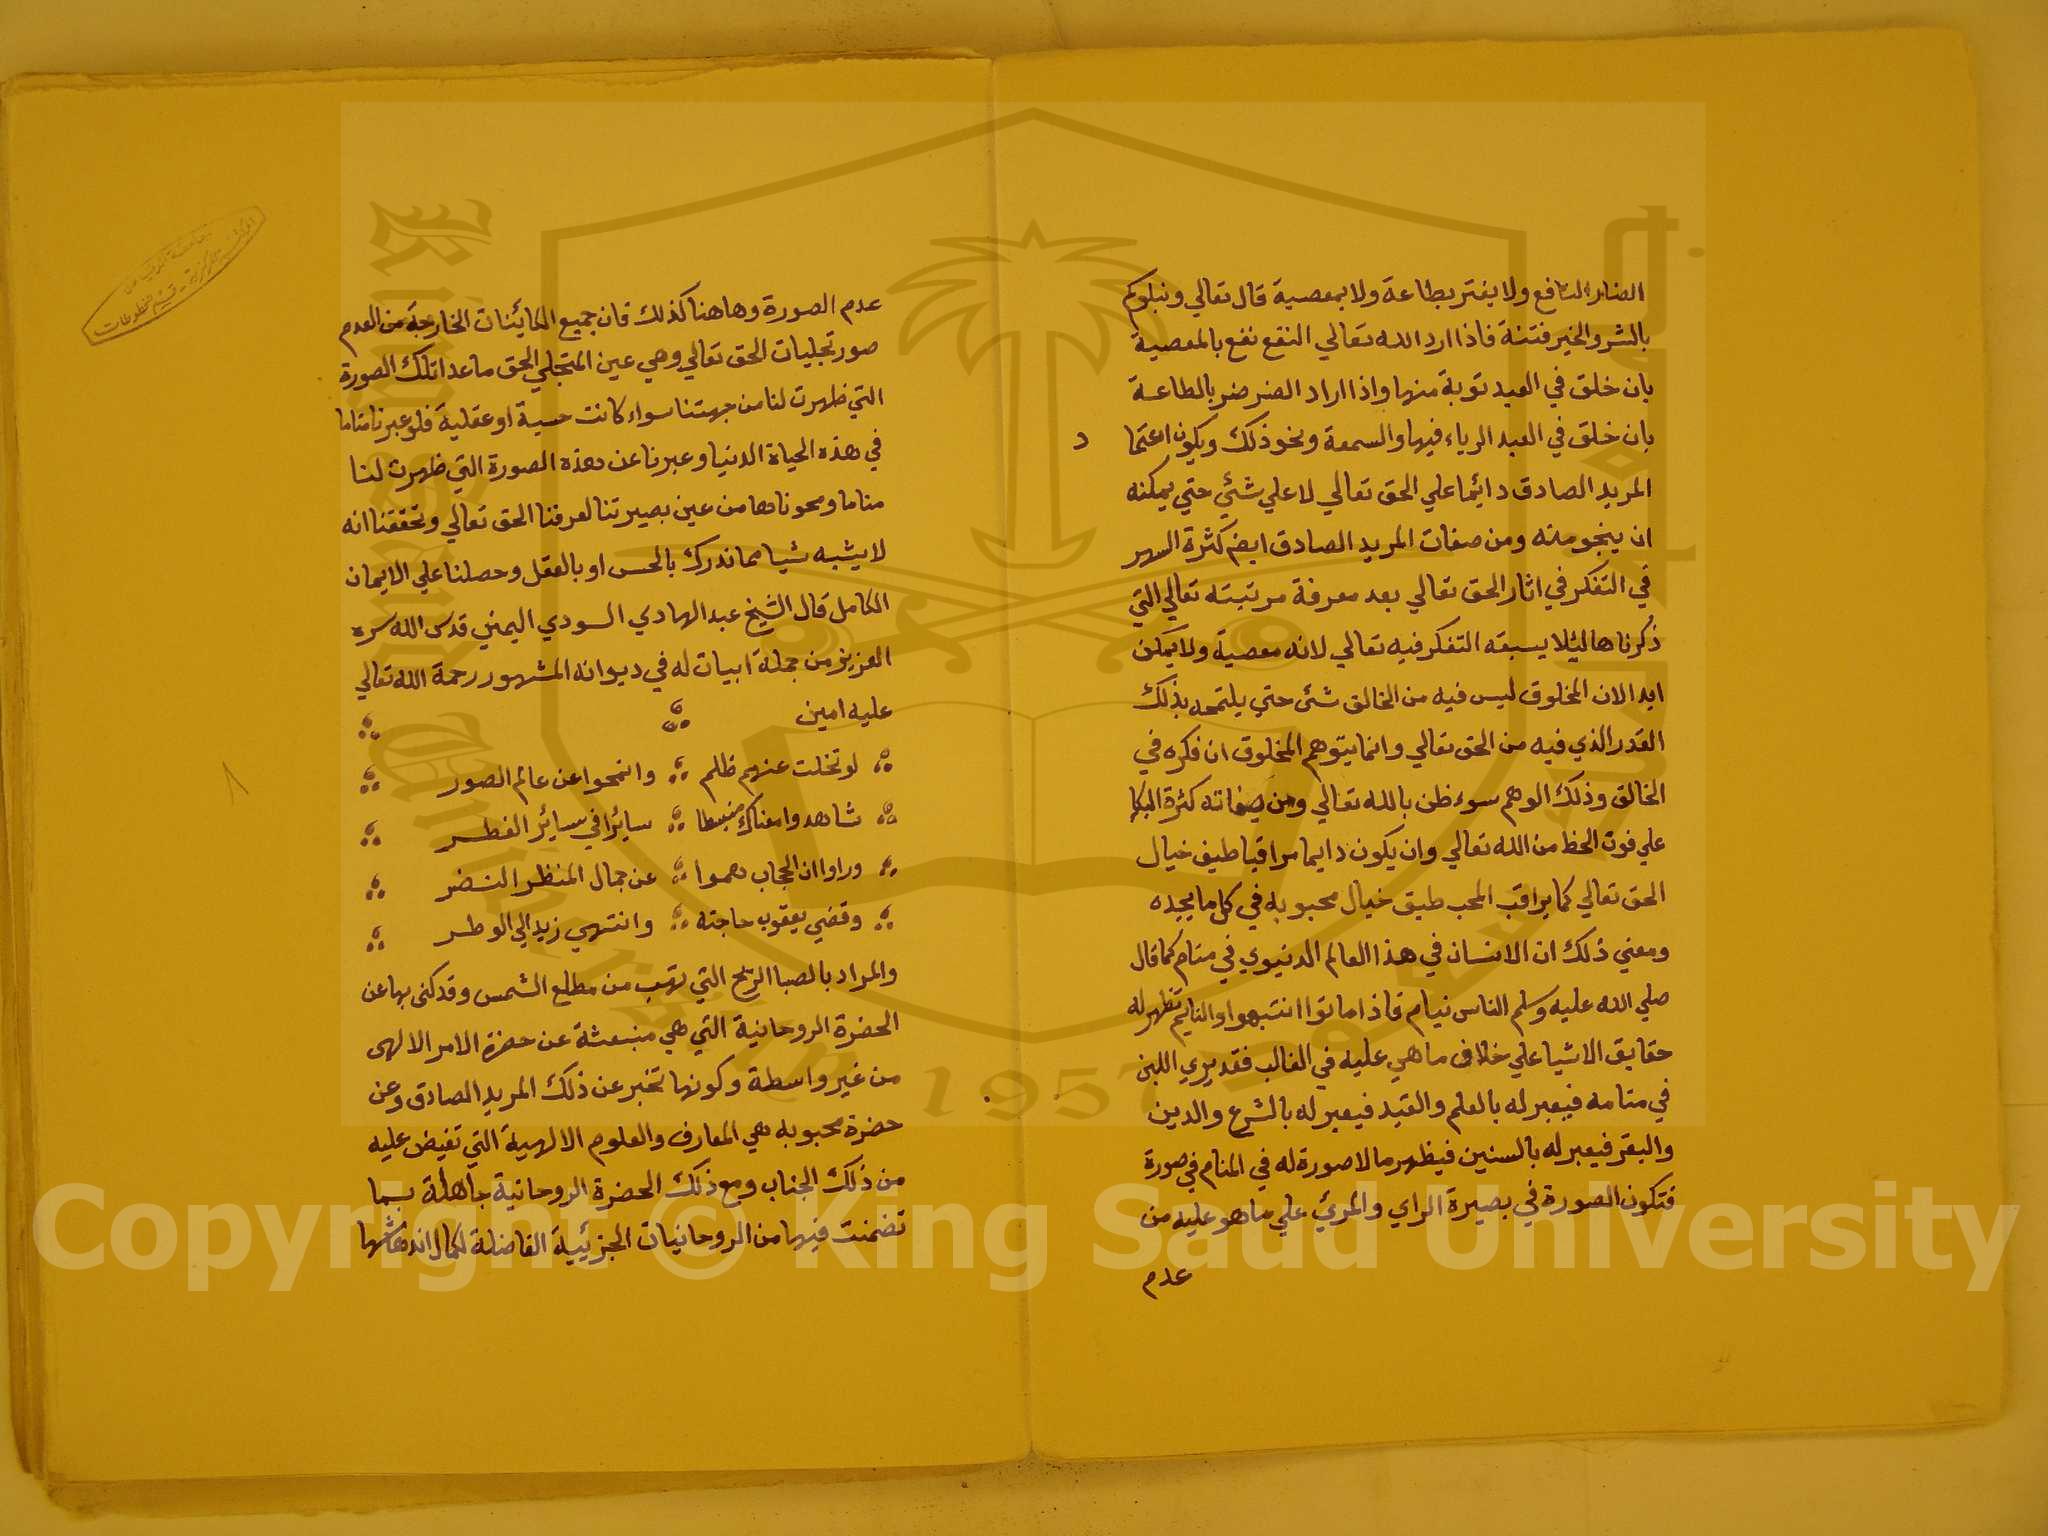 الضار النافع ولا يغتر بطاعة ولا بمعصية قال تعالي ونبلوكم
بالشر والخير فتنة فاذا ارد الله تعالي النفع نفع بالمعصية
بان خلق في العبد توبة منها واذا اراد الضر ضر بالطاعة
بان خلق في العبد الرياء فيها والسمعة ونحو ذلك ويكون اعتما د
المريد الصادق دائما علي الحق تعالي لا علي شئي حتي يمكنه
ان ينجو منه ومن صفات المريد الصادق ايضم كثرة السهر
في التفكر في اثار الحق تعالي بعد معرفة مرتبته تعالي التي
ذكرناها لئلا يسبقه التفكر فيه تعالي لانه معصية ولا يمكن
ابدا لان المخلوق ليس فيه من الخالق شئ حتي يلتمحه بذلك
القدر الذي فيه من الحق تعالي وانما يتوهم المخلوق ان فكره في
الخالق وذلك الوهم سوء ظن بالله تعالي ومن صفاته كثرة البكا
علي فوت الحظ من الله تعالي وان يكون دايما مراقبا طيف خيال
الحق تعالي كما يراقب المحب طيف خيال محبوبه في كل ما يجده
ومعني ذلك ان الانسان في هذا العالم الدنيوي في منام كما قال
صلي الله عليه وسلم الناس نيام فاذا ماتوا انتبهوا والنايم تظهر له
حقايق الاشيا علي خلاف ما هي عليه في الغالب فقد يري اللبن
في منامه فيعبر له بالعلم والقيد فيعبر له بالشرع والدين
والبقر فيعبر له بالسنين فيظهر ما لا صورة له في المنام في صورة
فتكون الصورة في بصيرة الراي والمرئ علي ما هو عليه من
عدم
عدم الصورة وهاهنا كذلك فان جميع الكائنات الخارجة من العدم
صور تجليات الحق تعالي وهي عين المتجلي الحق ما عدا تلك الصورة
التي ظهرت لنا من جهتنا سواء كانت حسية او عقلية فلو عبرنا منا ما
في هذه الحياة الدنيا وعبرنا عن هذه الصورة التي ظهرت لنا
مناما ومحوناها من عين بصيرتنا لعرفنا الحق تعالي وتحققنا انه
لا يشبه شيا مما ندرك بالحس او بالعقل وحصلنا علي الايمان
الكامل قال الشيخ عبد الهادي السودي اليمني قدس الله سره
العزيز من جملة ابيات له في ديوانه المشهور رحمة الله تعالي
عليه امين
لو تخلت عنهم ظلم وانمحوا عن عالم الصور
شاهدوا معناك منبسطا سائرا في سائر الفطر
وراوا ان الحجاب هموا عن جمال المنظر النضر
وقضي يعقوب حاجته وانتهي زيد الي الوطر
والمراد بالصبا الريح التي تهب من مطلع الشمس وقد كني بها عن
الحضرة الروحانية التي هي منبعثة عن حضرة الامر الالهي
من غير واسطة وكونها تخبر عن ذلك المريد الصادق وعن
حضرة محبوبه هي المعارف والعلوم الالهية التي تفيض عليه
من ذلك الجناب ومع ذلك الحضرة الروحانية جاهلة بما
تضمنت فيها من الروحانيات الجزئية الفاضلة لكمال اندهاشها
٨
King Saud University
1957
Copyright © King Saud University